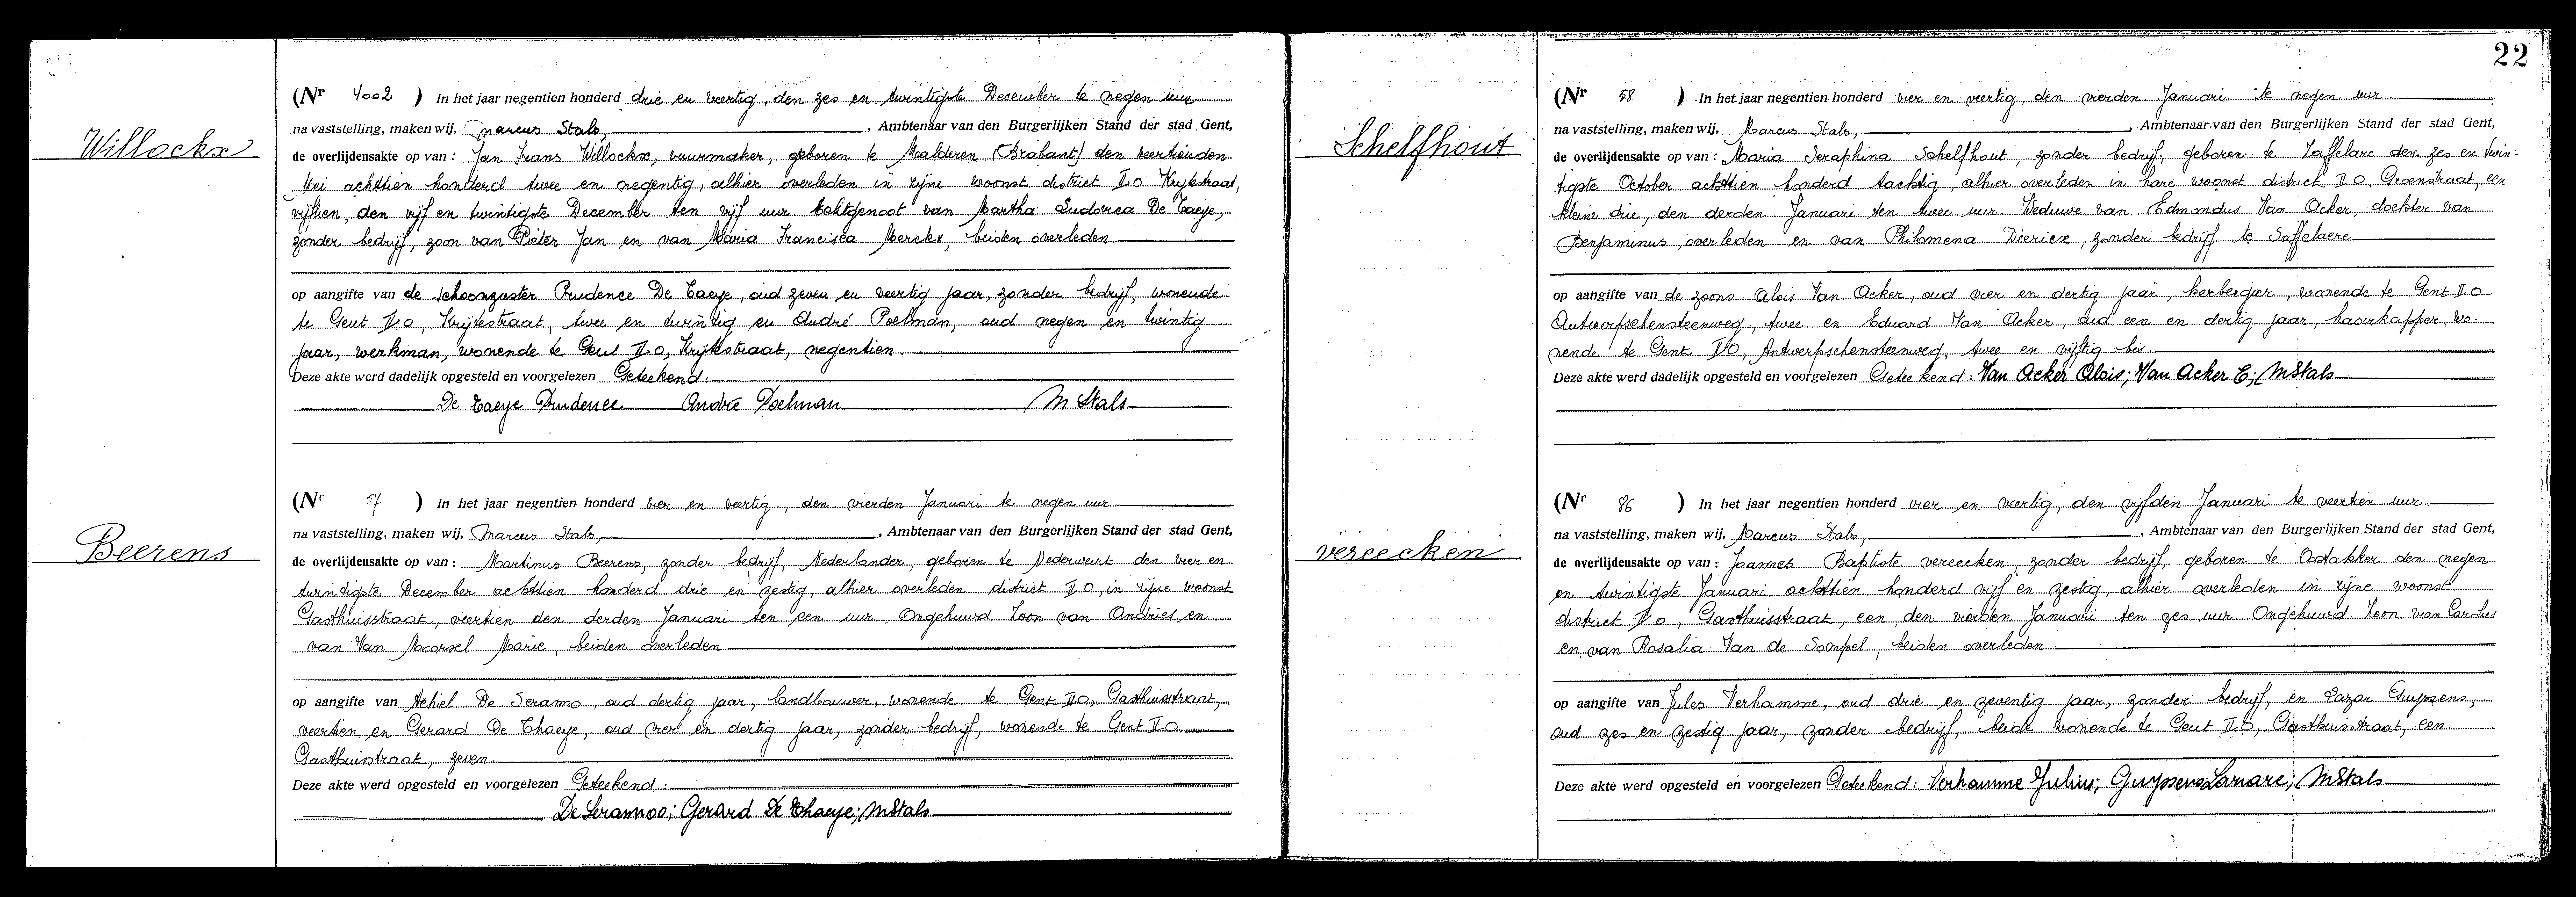 Willockx
(Nr 4002 ) In het jaar negentien honderd drie en veertig, den zes en twintigste December te negen uur
na vaststelling, maken wij, Marcus Stals, , Ambtenaar van den Burgerlijken Stand der stad Gent,
de overlijdensakte op van : Jan Frans Willockx, vuurmaker, geboren te Malderen (Brabant) den veertienden
Mei achttien honderd twee en negentig, alhier overleden in zijne woonst district II O Krijtestraat,
vijftien, den vijf en twintigste December ten vijf uur Echtgenoot van Martha Ludovica De Taeye,
zonder bedrijf, zoon van Pieter Jan en van Maria Francisca Merckx, beiden overleden
op aangifte van de schoonzuster Prudence De Taeye, oud zeven en veertig jaar, zonder bedrijf, wonende
te Gent II O, Krijtestraat, twee en twintig en André Poelman, oud negen en twintig
jaar, werkman, wonende te Gent II O, Krijtestraat, negentien.
Deze akte werd dadelijk opgesteld en voorgelezen Geteekend:
De Taeye Prudence André Poelman M Stals
Beerens
(Nr 57 ) In het jaar negentien honderd vier en veertig, den vierden Januari te negen uur
na vaststelling, maken wij, Marcus Stals, , Ambtenaar van den Burgerlijken Stand der stad Gent,
de overlijdensakte op van : Martinus Beerens, zonder bedrijf, Nederlander, geboren te Nederweert den vier en
twintigste December achttien honderd drie en zestig, alhier overleden district II O, in zijne woonst
Gasthuisstraat, veertien den derden Januari ten een uur Ongehuwd Zoon van Andries en
van Van Moorsel Marie, beiden overleden
op aangifte van Achiel De Seramo, oud dertig jaar, landbouwer, wonende te Gent II O, Gasthuisstraat,
veertien en Gerard De Thaeye, oud vier en dertig jaar, zonder bedrijf, wonende te Gent II O
Gasthuisstraat, zeven
Deze akte werd opgesteld en voorgelezen Geteekend:
De Serannoo; Gerard De Thaeye; MStals
22
Schelfhout
(Nr 58 ) In het jaar negentien honderd vier en veertig, den vierden Januari te negen uur
na vaststelling, maken wij, Marcus Stals, , Ambtenaar van den Burgerlijken Stand der stad Gent,
de overlijdensakte op van : Maria Seraphina Schelfhout, zonder bedrijf, geboren te Zaffelare den zes en twin-
tigste October achttien honderd tachtig, alhier overleden in hare woonst district II O, Groenstraat, een
kleine drie, den derden Januari ten twee uur Weduwe van Edmondus Van Acker, dochter van
Benjaminus, overleden en van Philomena Diericx, zonder bedrijf te Saffelaere
op aangifte van de zoons Alois Van Acker, oud vier en dertig jaar, herbergier, wonende te Gent II O
Antwerpschensteenweg, twee en Eduard Van Acker, oud een en dertig jaar, haarkapper, wo-
nende te Gent II O, Antwerpschensteenweg, twee en vijftig bis
Deze akte werd dadelijk opgesteld en voorgelezen Geteekend: Van Acker Alois; Van Acker E; MStals
vereecken
(Nr 86 ) In het jaar negentien honderd vier en veertig, den vijfden Januari te veertien uur
na vaststelling, maken wij, Marcus Stals, , Ambtenaar van den Burgerlijken Stand der stad Gent,
de overlijdensakte op van : Joannes Baptiste vereecken, zonder bedrijf, geboren te Oostakker den negen
en twintigste Januari achttien honderd vijf en zestig, alhier overleden in zijne woonst
district II O, Gasthuisstraat, een, den vierden Januari ten zes uur Ongehuwd Zoon van Carolus
en van Rosalia Van de Sompel, beiden overleden
op aangifte van Jules Verhamme, oud drie en zeventig jaar, zonder bedrijf, en Lazar Guypens,
oud zes en zestig jaar, zonder bedrijf, beide wonende te Gent II O, Gasthuisstraat, een
Deze akte werd opgesteld en voorgelezen Geteekend: Verhamme Julius; Guypens Lazare; MStals